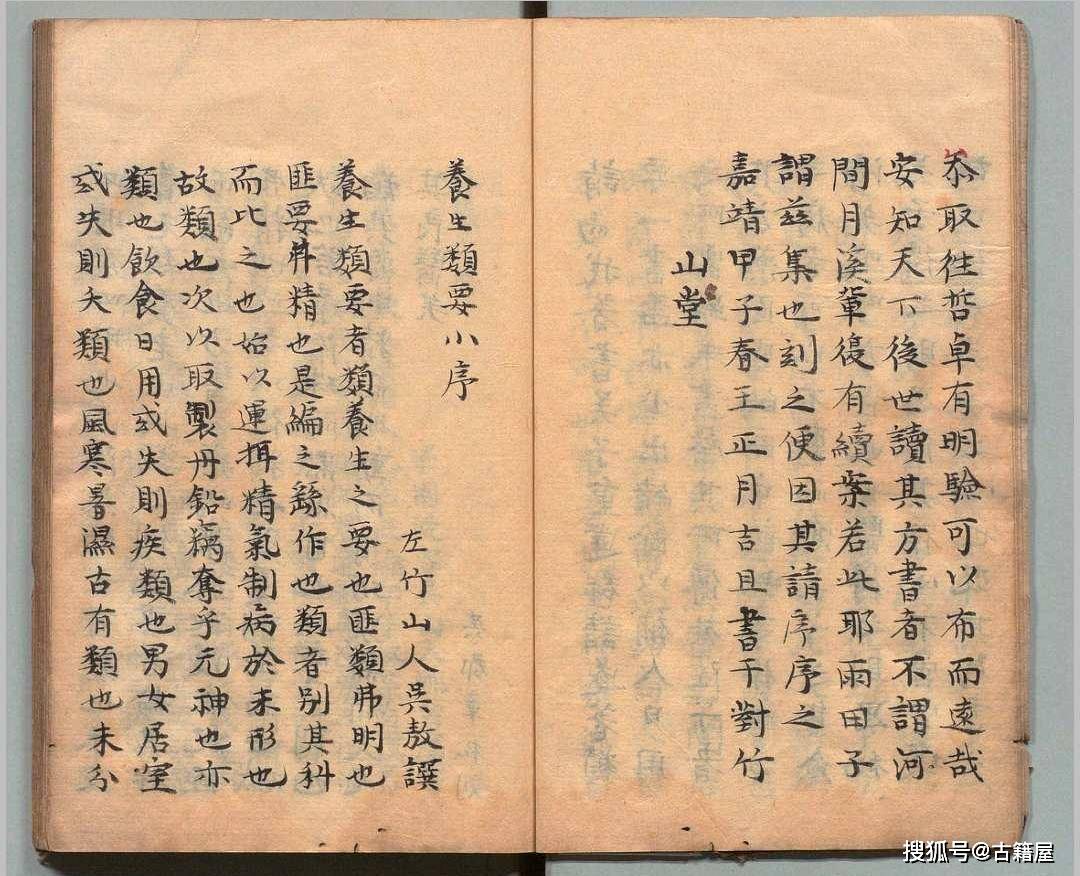 忝取徃哲卓有明驗可以布而遠哉
安知天下後世讀其方書者不謂河
間月溪軰復有續案若此耶雨田子
謂兹集也刻之便因其請序序之
嘉靖甲子春王正月吉旦書于對竹
山堂
養生類要小序
左竹山人吳敖譔
養生類要者類養生之要也匪類弗明也
匪要弗精也是編之繇作也類者别其科
而比之也始以運揖精氣制病於未形也
故類也次以取製丹鉛竊奪乎元神也亦
類也飲食日用或失則疾類也男女居室
或失則夭類也風寒暑濕古有類也未分
搜狐号@古籍屋